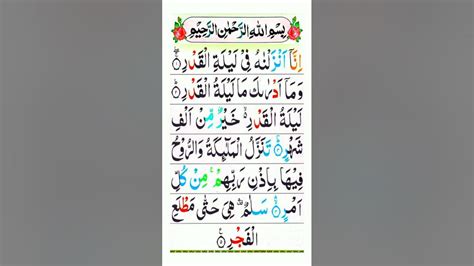 بِسْمِ اللهِ الرَّحْمٰنِ الرَّحِيْمِ
اِنَّاۤ اَنْزَلْنٰهُ فِیْ لَیْلَةِ الْقَدْرِۚۖ۝
وَمَاۤ اَدْرٰىكَ مَا لَیْلَةُ الْقَدْرِؕ۝
لَیْلَةُ الْقَدْرِ۬ۙ خَیْرٌ مِّنْ اَلْفِ
شَهْرٍؕ۝ تَنَزَّلُ الْمَلٰٓىِٕكَةُ وَالرُّوْحُ
فِیْهَا بِاِذْنِ رَبِّهِمْۚ مِنْ كُلِّ
اَمْرٍۙ۝ سَلٰمٌۛ۫ هِیَ حَتّٰى مَطْلَعِ
الْفَجْرِ۠۝